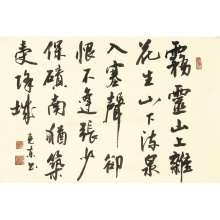 霧靈山上雜
花生山下流泉
入塞聲卻
恨不逢張少
保磧南猶築
受降城